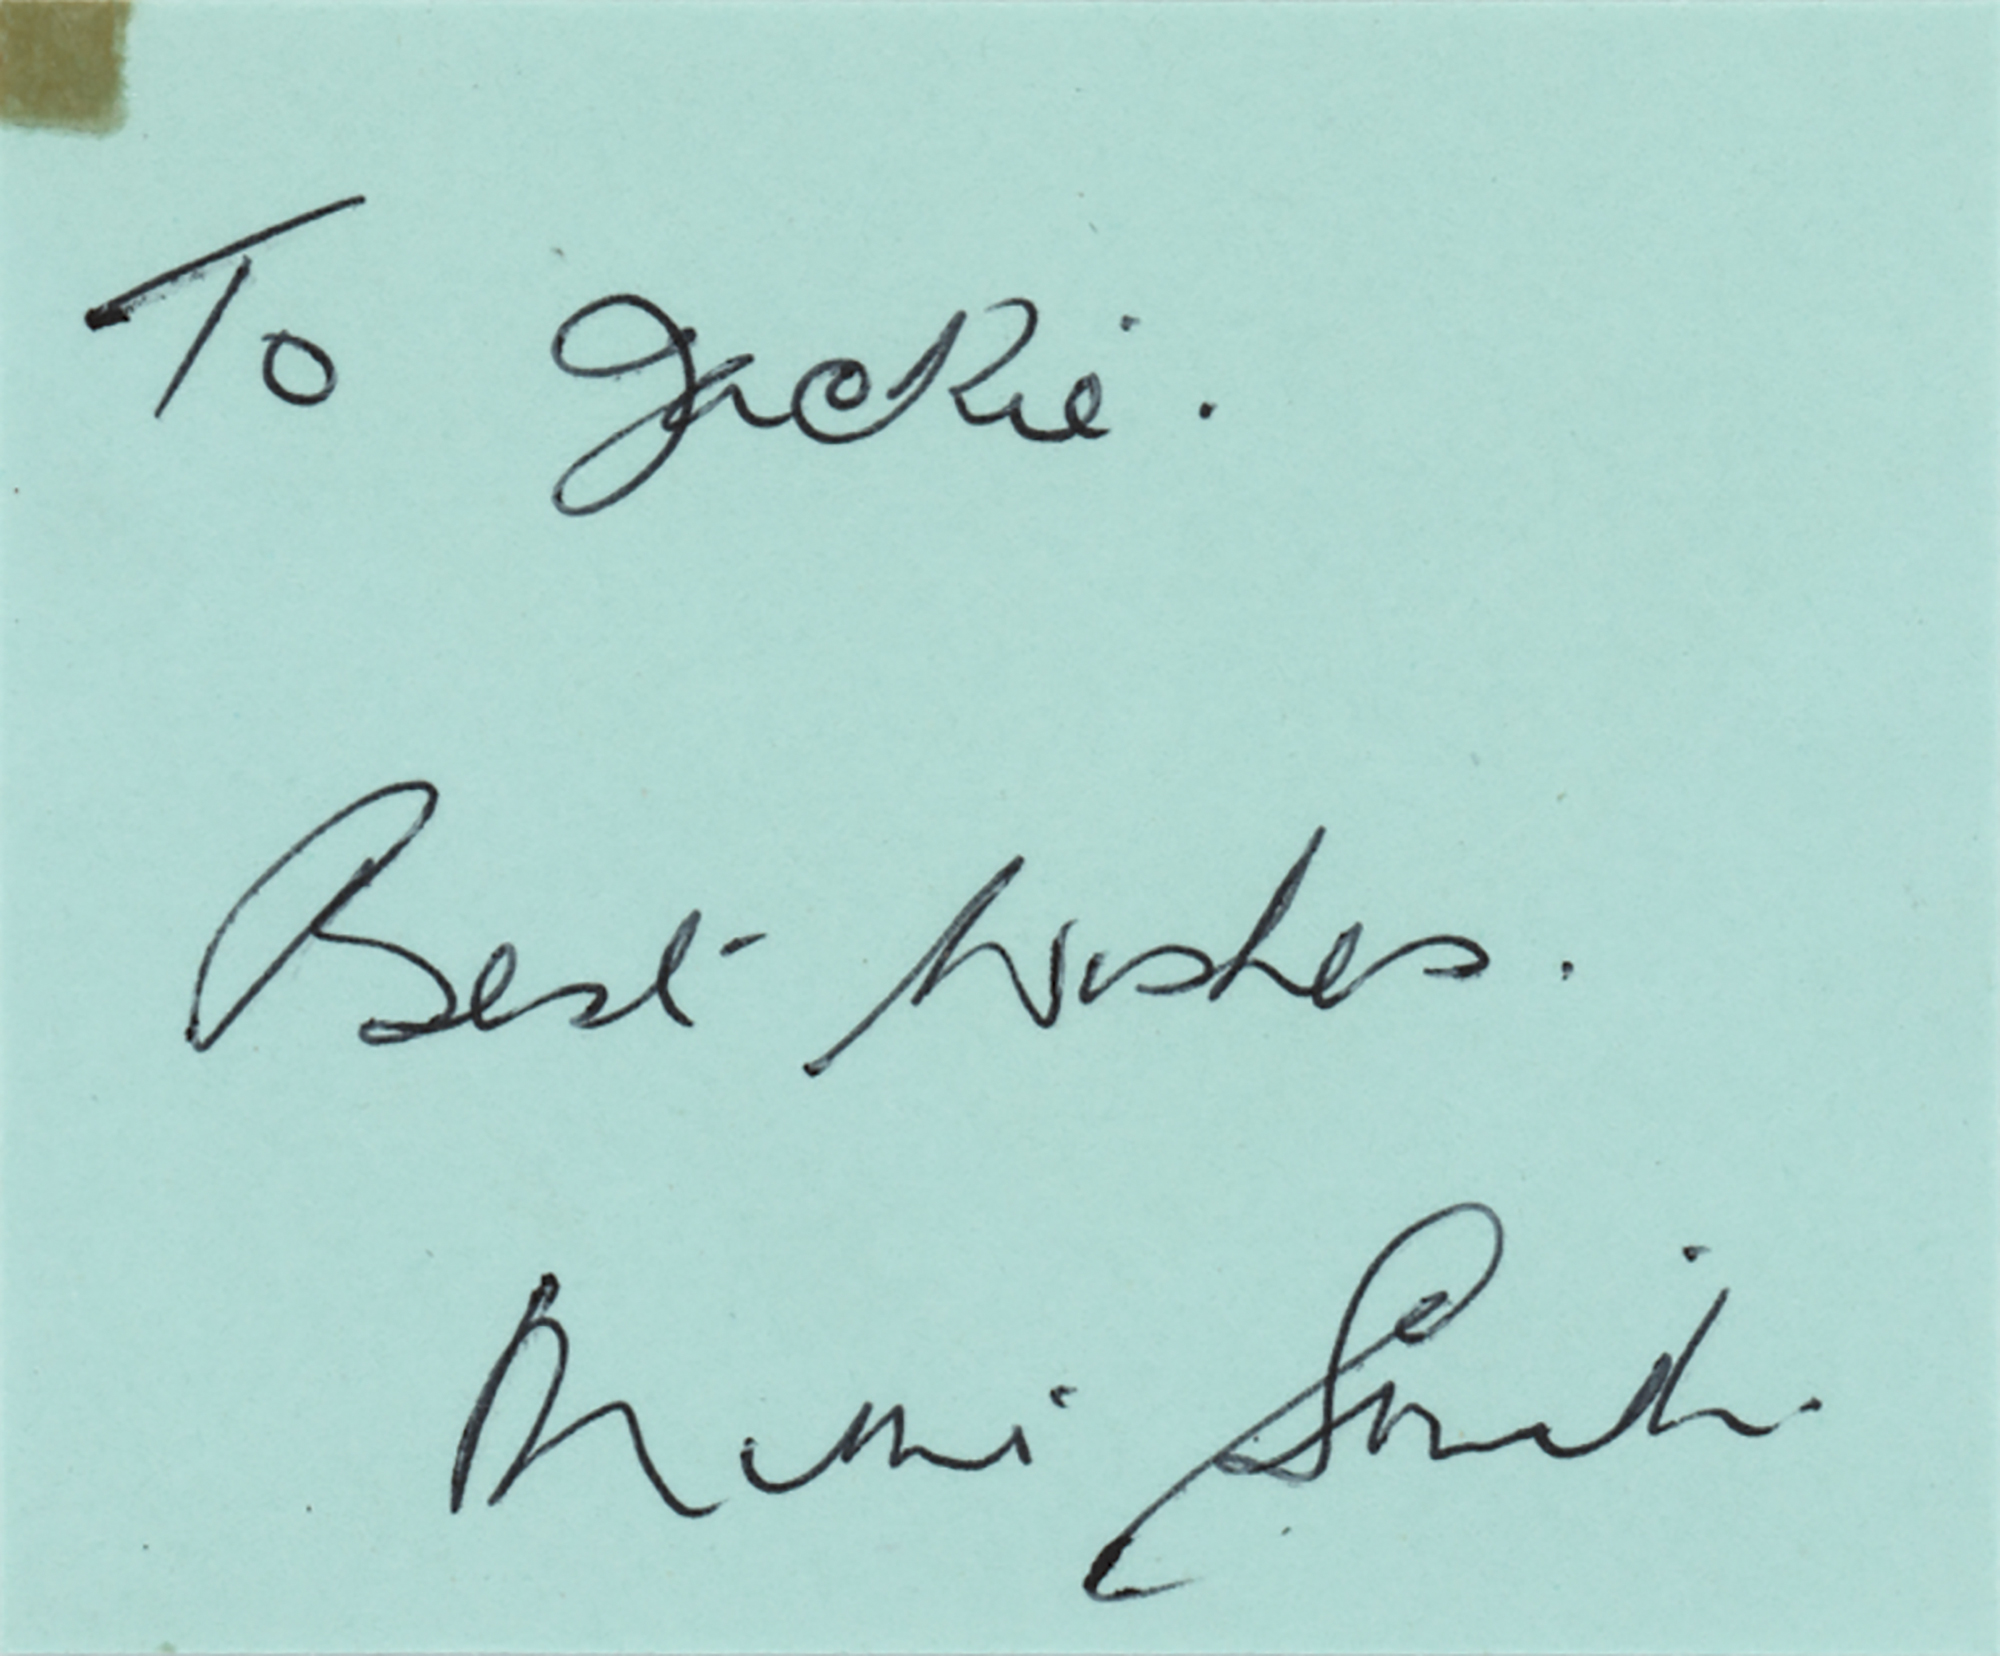 To Jackie.
Best Wishes.
Smith.